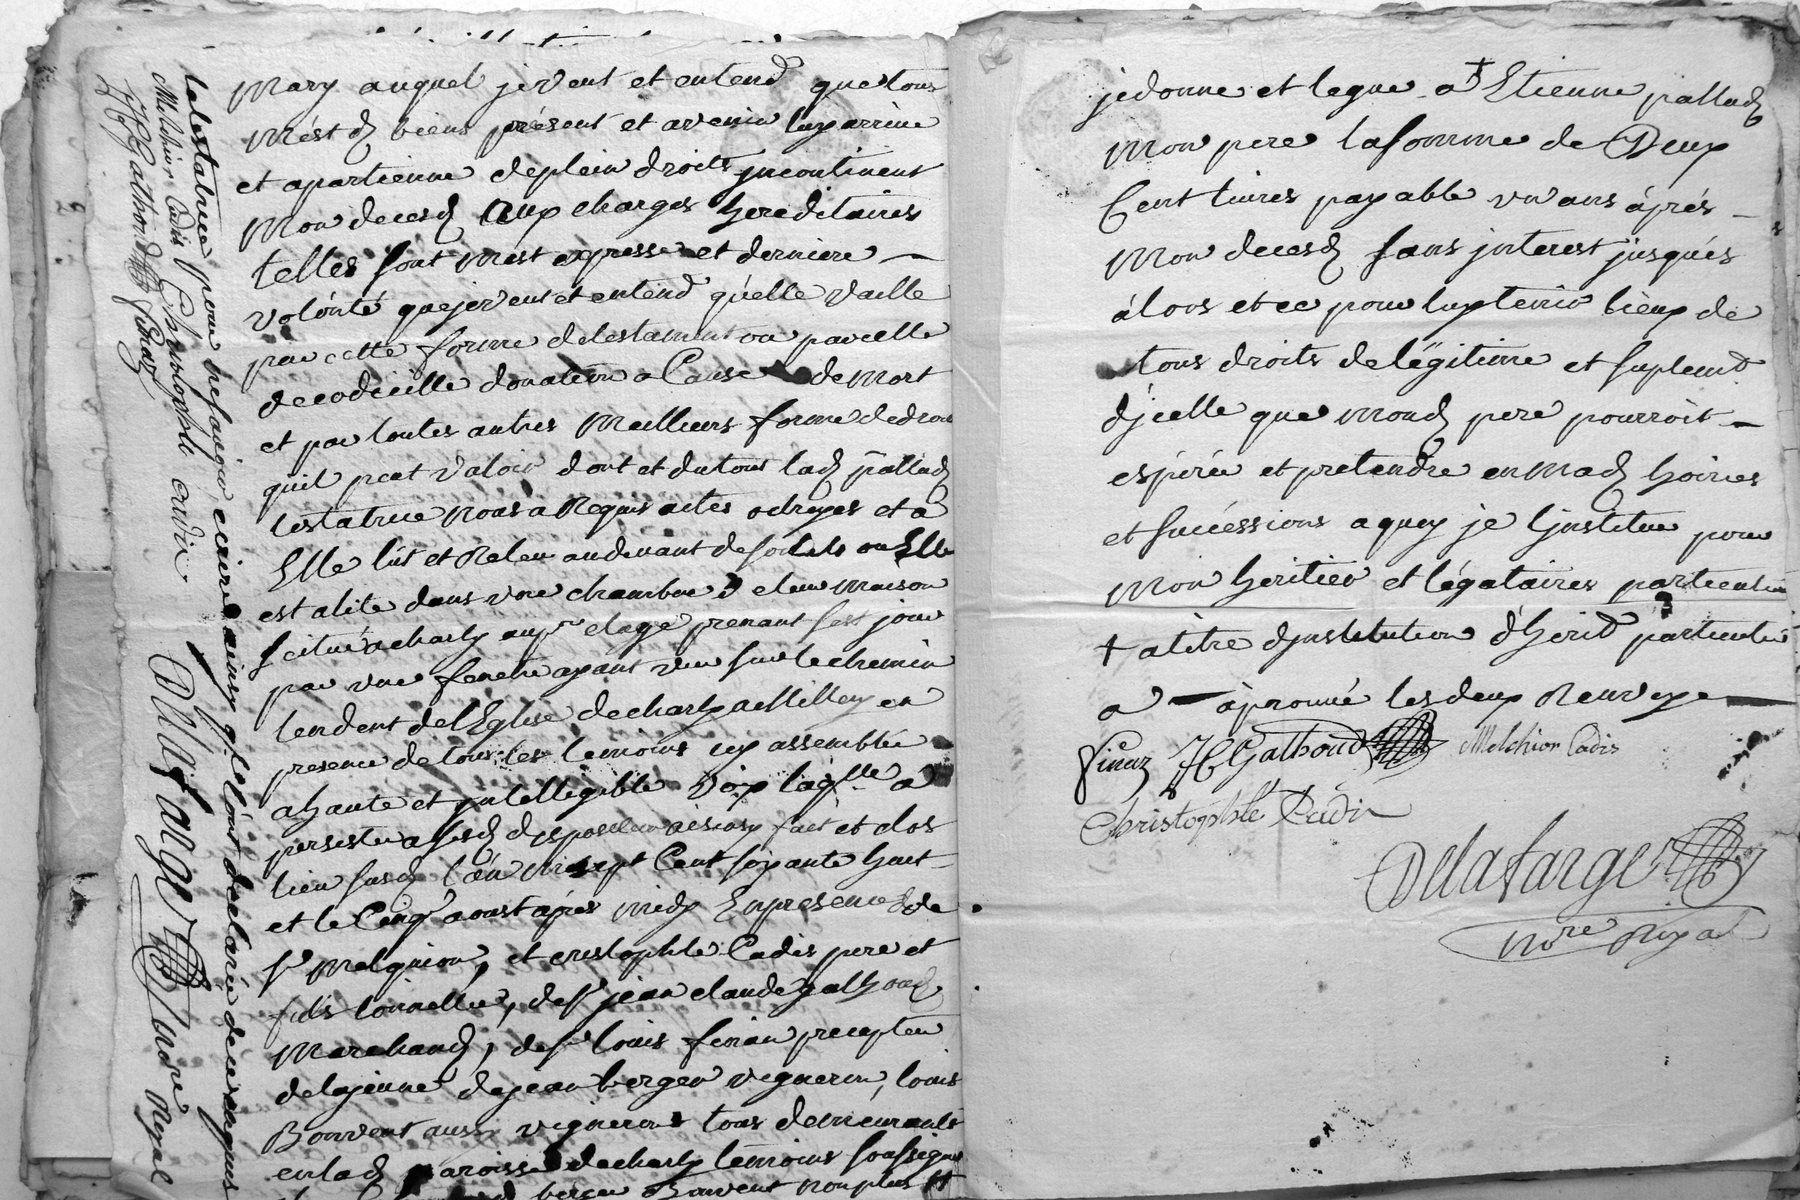 Mary auquel je veut et entend que tous
mest dz biens présent et avenir luy arrive
et apartienne de plein droits jncontinent
Mon decesdz aux charges hereditaires
telles sont mest expresse et derniere
volónté que je veut et entend qu'elle vaille
par cette forme de testament ou par celle
de codicille donation a Cause de Mort
et par toutes autres Meilleurs forme de droit
quil peut valoir dont et du tout ladz palludz
testatrice Nous a Requis actes octroyes et a
Elle lut et Releu au devant de son lit ou Elle
est alité dans une chambre de leur Maison
scitué a charly au pr etage prenant sest jour
par une fenetre ayant veu sur le chemin
tendent de l'Eglise de charly a Milley en
presence de tous les temoins icy assemblée
a haute et jntelligible voix laqlle a
persisté a sesdz dispositions ainsy fait et clos
lieu susdz l'an Mil sept Cent soixante huit
et le Cinq aoust apres midy En presence de
sr Melquion, et cristophle Cadis pere et
fils tonnellier, de sr jean claude galhoudz
Marchandz, de sr louis finan precepteur
de la jeunne de jean berger vigneron, louis
Bonvent aussy vignerons tous demeurants
en ladz paroisse de charly temoins soussignés
berger Bonvent non plus
la testatrice pour ne savoir ecrire ainsy qu'ils l'ont declaré de ce requis
Melchior Cadis Christophle cadis
JC Galhoud finaz
Delafarge Nore Royal
je donne et legue a † Etienne palludz
Mon pere la somme de Deux
Cent livres payable un ans áprés
Mon decesdz sans jnterest jusqués
álors et ce pour luy tenir lieux de
tous droits de légitime et suplemt
djcelle que mondz pere pourroit
espérée et pretendre en Madz hoiries
et succéssions a quoy je l'jnstitue pour
Mon heritier et légataires particulier
† a titre djnstitution d'hérité particulier
a — áprouvé les deux Renvoye
finaz JC Galhoud Melchior Cadis
Christophle Cadis
Delafarge
Nore Royal